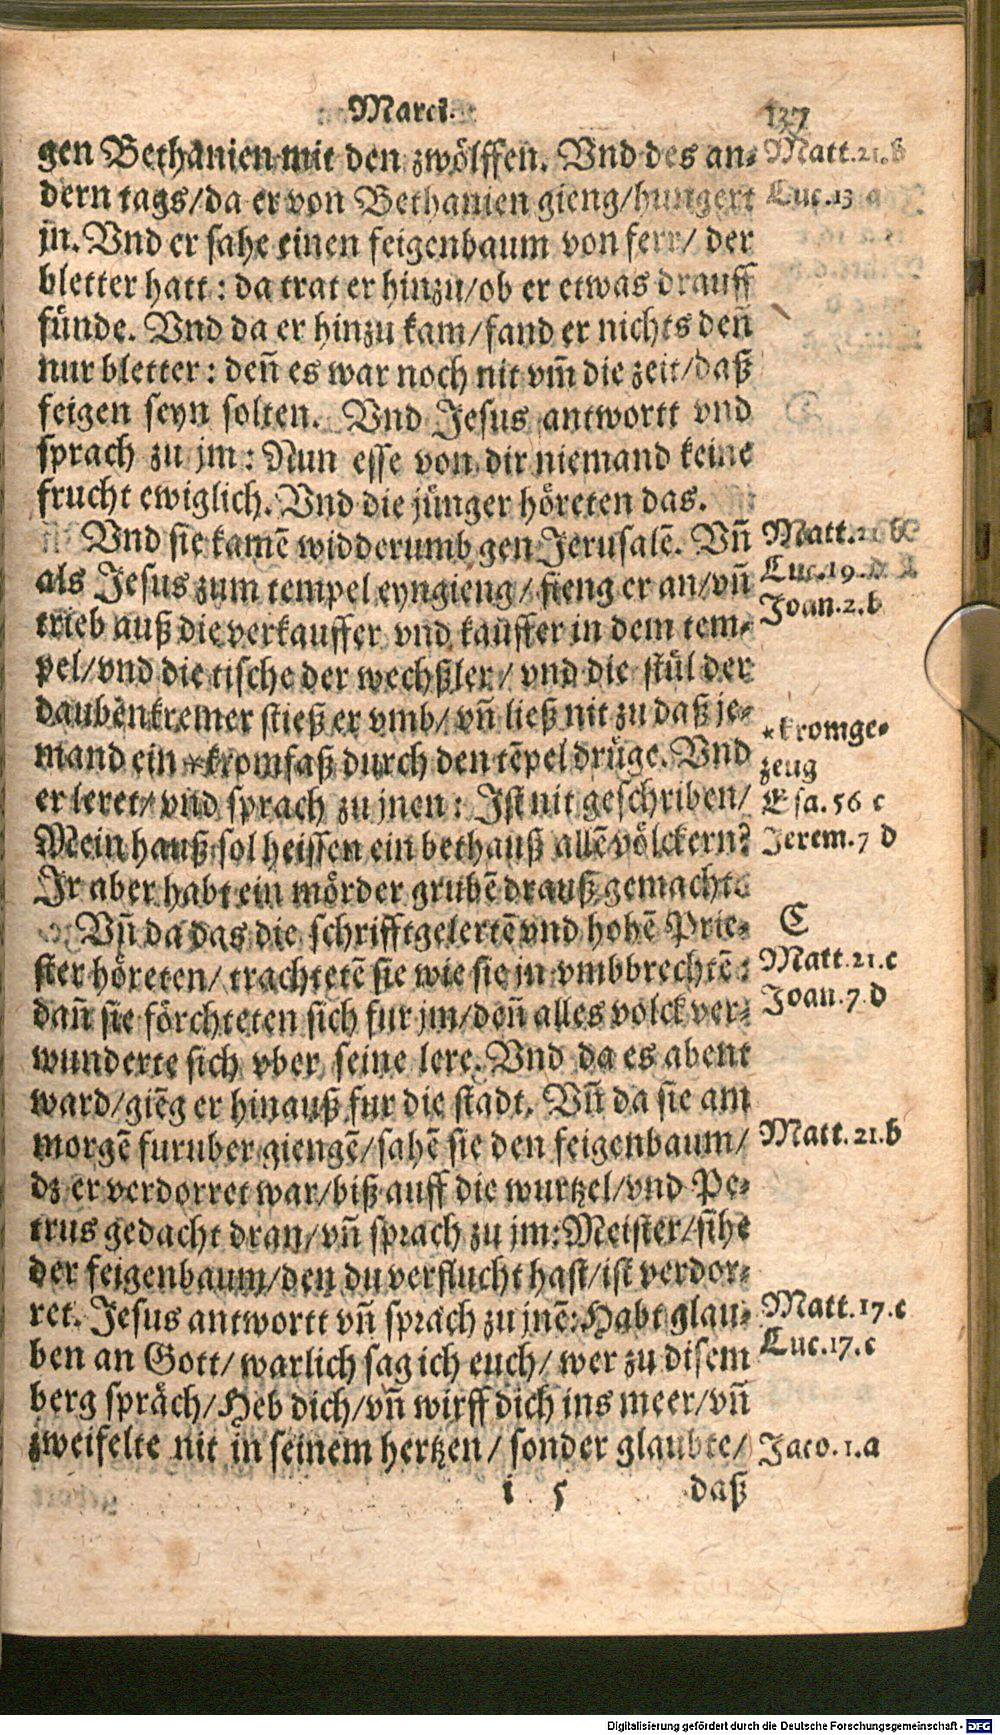 Marci.
137
gen Bethanien mit den zwölffen. Vnd des an⸗
dern tags/da er von Bethanien gieng/hungert
jn. Vnd er sahe einen feigenbaum von ferr/ der
bletter hatt: da trat er hinzu/ob er etwas drauff
fünde. Vnd da er hinzu kam/fand er nichts deñ
nur bletter: deñ es war noch nit vm̃ die zeit/daß
feigen seyn solten. Vnd Jesus antwortt vnd
sprach zu jm: Nun esse von dir niemand keine
frucht ewiglich. Vnd die jünger höreten das.
Vnd sie kamẽ widderumb gen Jerusalẽ. Vñ
als Jesus zum tempel eyngieng/ fieng er an/vñ
trieb auß die verkauffer vnd kauffer in dem tem⸗
pel/vnd die tische der wechßler/ vnd die stül der
daubenkremer stieß er vmb/ vñ ließ nit zu daß je⸗
mand ein *kromfaß durch den tẽpel drüge. Vnd
er leret/ vnd sprach zu jnen: Ist nit geschriben/
Mein hauß sol heissen ein bethauß allẽ völckern?
Ir aber habt ein mörder grubẽ drauß gemacht.
Vñ da das die schrifftgelertẽ vnd hohẽ Prie⸗
ster höreten/ trachtetẽ sie wie sie jn vmbbrechtẽ:
dañ sie förchteten sich fur jm/deñ alles volck ver⸗
wunderte sich vber seine lere. Vnd da es abent
ward/giẽg er hinauß fur die stadt. Vñ da sie am
morgẽ furuber giengẽ/sahẽ sie den feigenbaum/
dz er verdorret war/biß auff die wurtzel/vnd Pe⸗
trus gedacht dran/vñ sprach zu jm: Meister/sihe
der feigenbaum/den du verflucht hast/ist verdor⸗
ret. Jesus antwortt vñ sprach zu jnẽ: Habt glau⸗
ben an Gott/ warlich sag ich euch/ wer zu disem
berg spräch/Heb dich/vñ wirff dich ins meer/vñ
zweifelte nit in seinem hertzen/ sonder glaubte/
i 5
daß
Matt.21.b
Luc.13 a
Matt.21 b
Luc.19.d
Joan.2.b
*kromge⸗
zeug
Esa.56 c
Jerem.7 d
C
Matt.21.c
Joan.7 d
Matt.21.b
Matt.17.c
Luc.17.c
Jaco.1.a
Digitalisierung gefördert durch die Deutsche Forschungsgemeinschaft - DFG